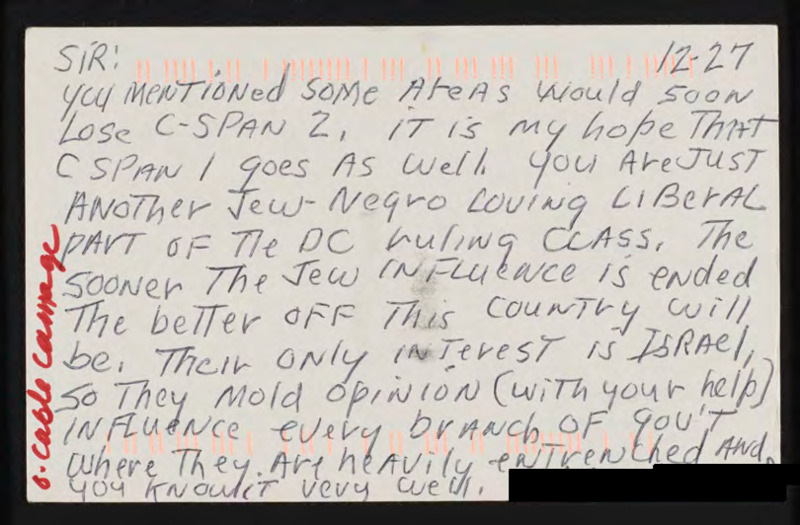 SIR! 12-27
you MENTIONed SOMe AreAS would soon
Lose C-SPAN 2, iT is my hope THAT
C SPAN 1 goes AS well. you Are JUST
ANoTHer Jew-Negro Loving LiBerAL
PART OF THe DC ruling CLASS. The
SOONer The Jew INFLuence is ended
The beTTer OFF This COUNTry will
be. Their ONly iNTeresT is ISRAel,
So They Mold OpiNiON (with your help)
INFLuence every brANch OF gou'T
where They Are heAvily eNTrenched AND
you KNow iT very well.
6. cable campage